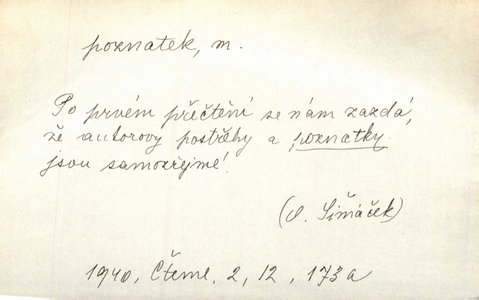 poznatek, m.
Po prvém přečtení se nám zazdá,
že autorovy postřehy a poznatky
jsou samozřejmé.
(O. Šimáček)
1940, Čteme, 2, 12, 173a